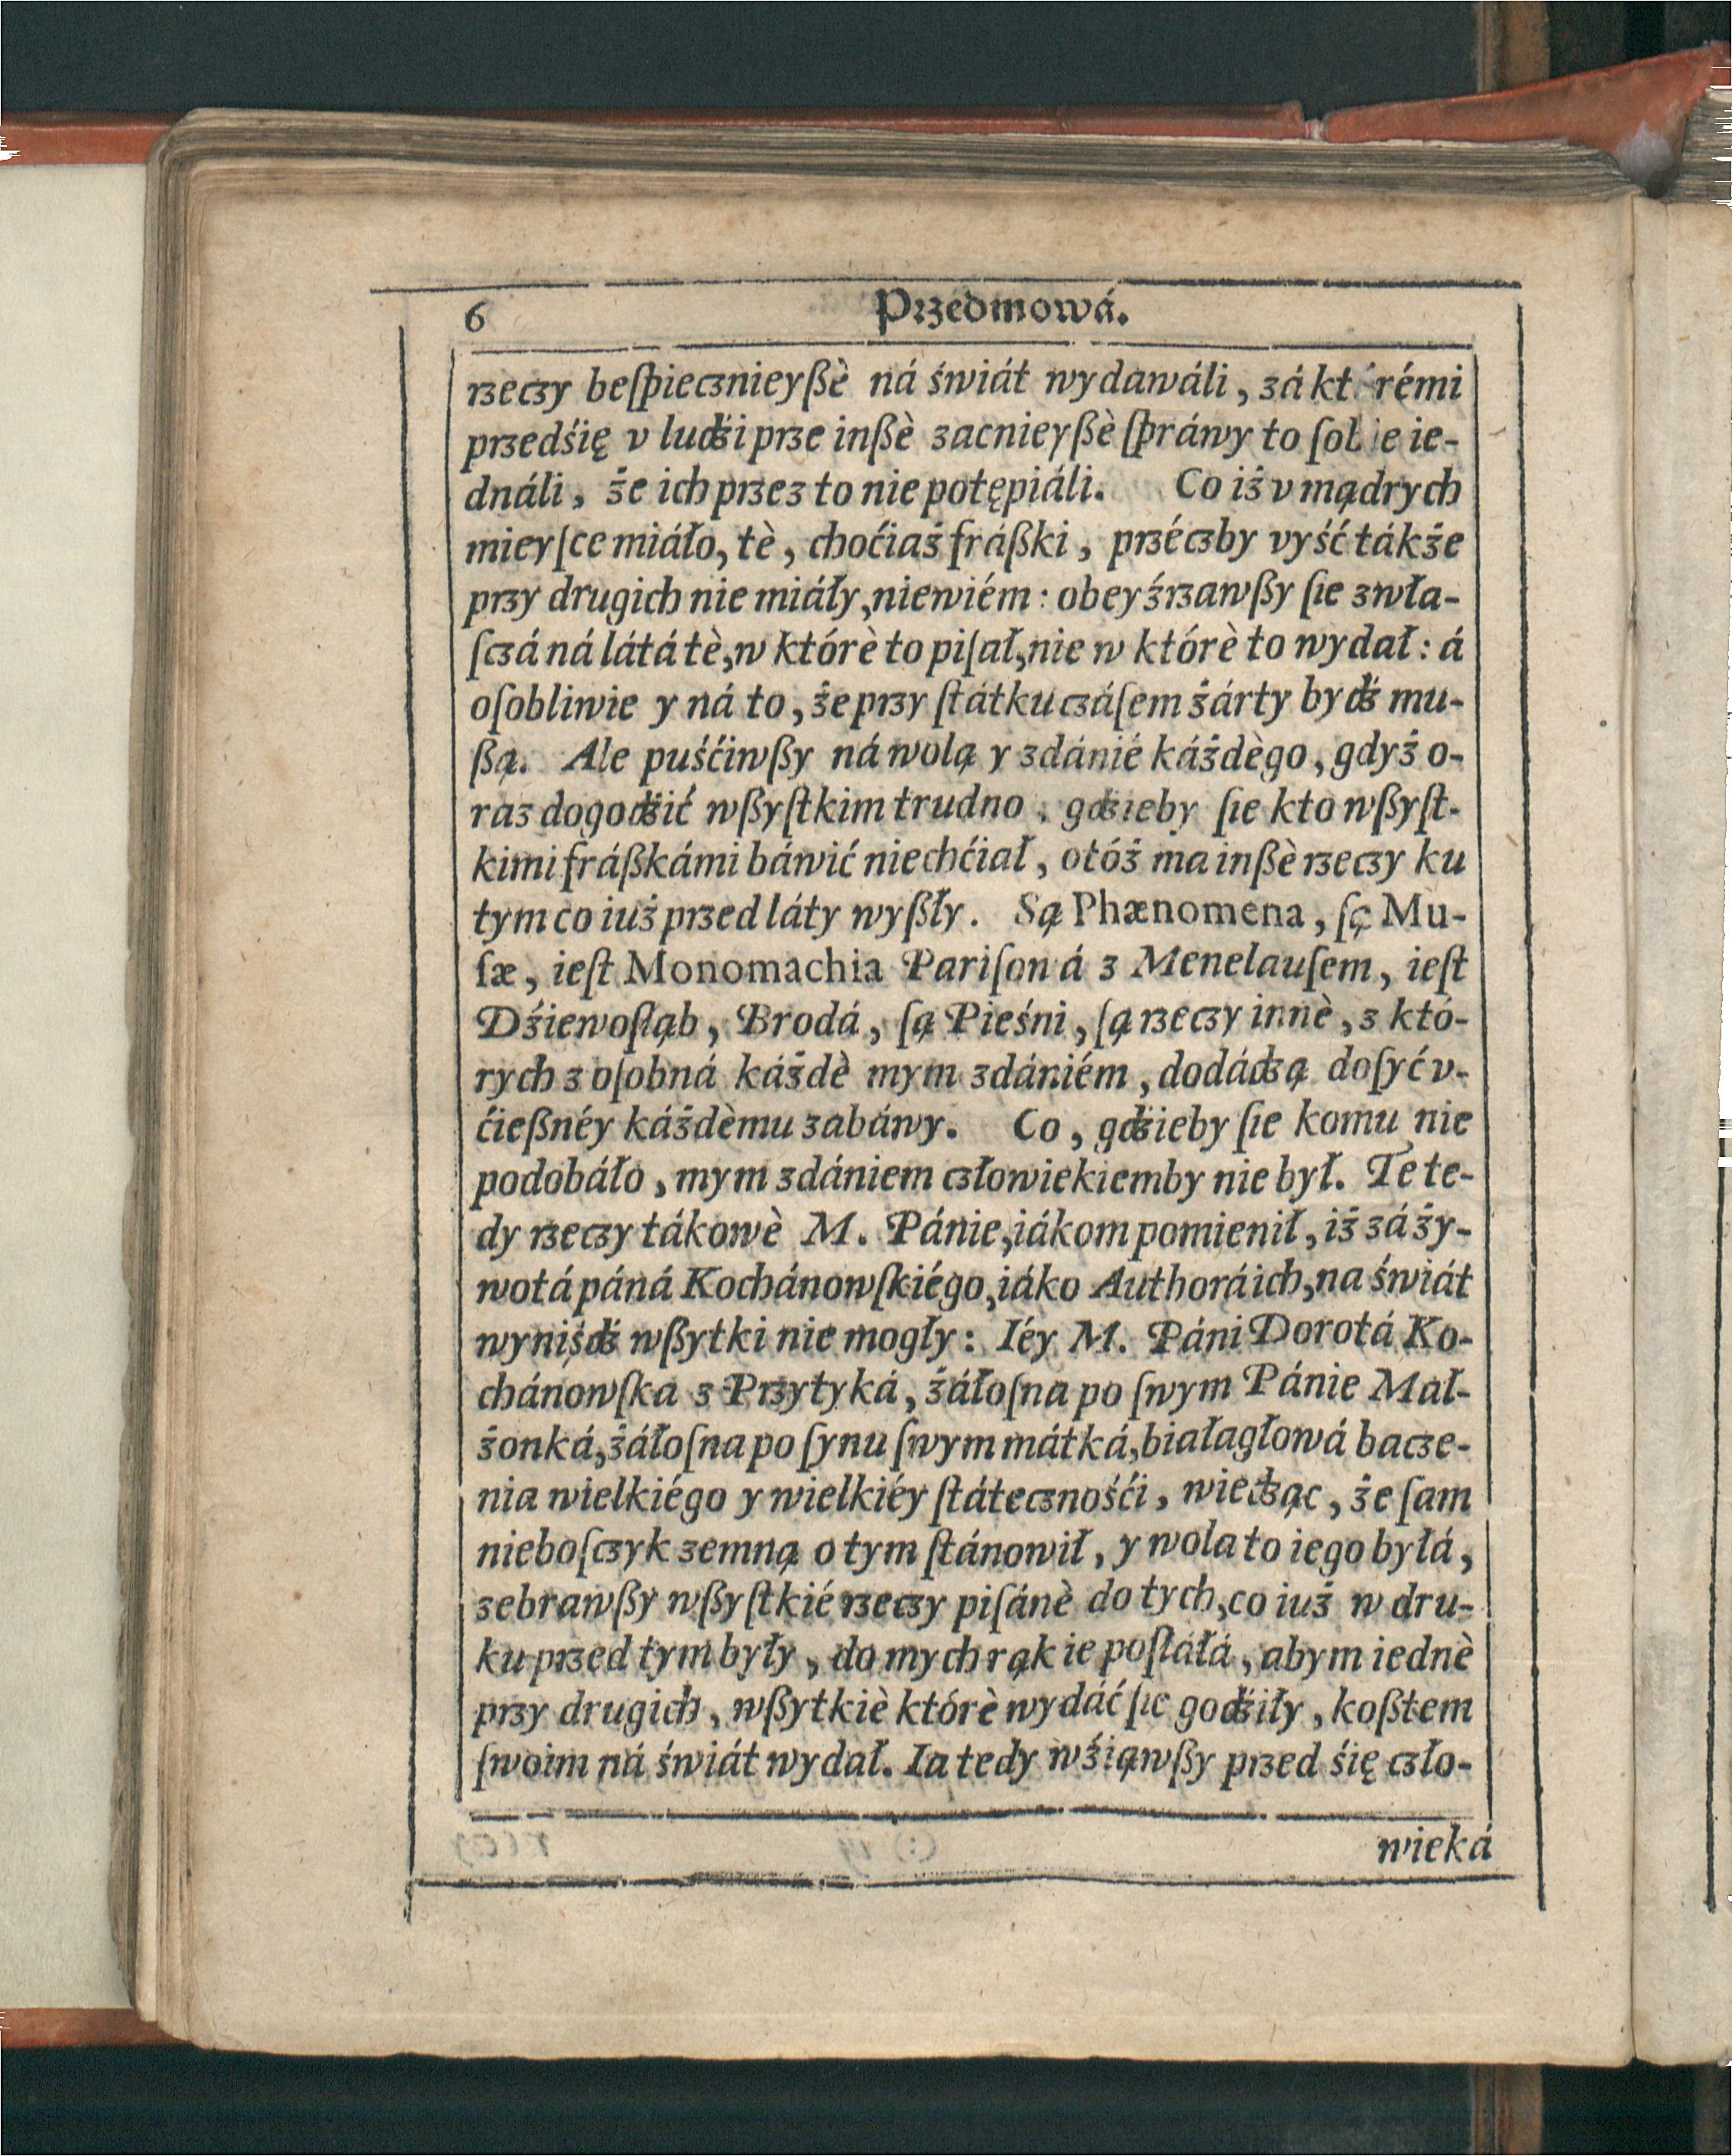 6 Przedmowá.
rzeczy beſpiecznieyßè ná świát wydawáli, zá którémi
przedśię v ludźi prze inßè zacnieyßè ſpráwy to ſobie ie-
dnáli, że ich przez to nie potępiáli. Co iż v mądrych
mieyſce miáło, tè, choćiaż fráßki, przéczby vyść tákże
przy drugich nie miáły, niewiém: obeyźrzawßy ſie zwła-
ſczá ná látá tè, w którè to piſał, nie w którè to wydał: á
oſobliwie y ná to, że przy ſtátku czáſem żárty bydź mu-
ßą. Ale puśćiwßy ná wolą y zdánié káżdègo, gdyż o-
raz dogodźić wßyſtkim trudno, gdzieby ſie kto wßyſt-
kimi fráßkámi báwić niechćiał, otóż ma inßè rzeczy ku
tym co iuż przed láty wyßły. Są Phænomena, ſą Mu-
ſæ, ieſt Monomachia Pariſoná z Menelauſem, ieſt
Dźiewoſląb, Brodá, ſą Pieśni, ſą rzeczy innè, z któ-
rych z oſobná káżdè mym zdániém, dodádzą doſyć v-
ćießnéy káżdèmu zabáwy. Co, gdźieby ſie komu nie
podobáło, mym zdániem człowiekiemby nie był. Te te-
dy rzeczy tákowè M. Pánie, iákom pomienił, iż zá ży-
wotá páná Kochánowſkiégo, iáko Authorá ich, na świát
wyniśdź wßytki nie mogły: Iéy M. Páni Dorotá Ko-
chánowſka z Przytyká, żáłoſna po ſwym Pánie Mał-
żonká, żáłoſna po ſynu ſwym mátká, białagłowá bacze-
nia wielkiégo y wielkiéy ſtátecznośći, wiedząc, że ſam
nieboſczyk zemną o tym ſtánowił, y wola to iego byłá,
zebrawßy wßyſtkié rzeczy piſánè do tych, co iuż w dru-
ku przed tym były, do mych rąk ie poſłáłá, abym iednè
przy drugich, wßytkiè którè wydáć ſie godźiły, koßtem
ſwoim ná świát wydał. Ia tedy wźiąwßy przed śię czło-
wieká